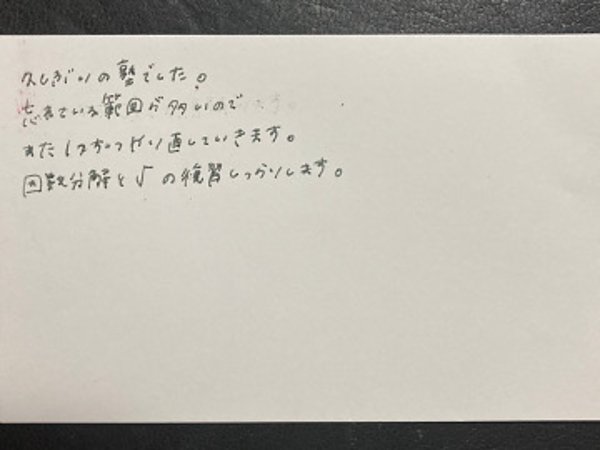 久しぶりの塾でした。
忘れている範囲が多いので
また1つずつやり直していきます。
因数分解と√の復習しっかりします。